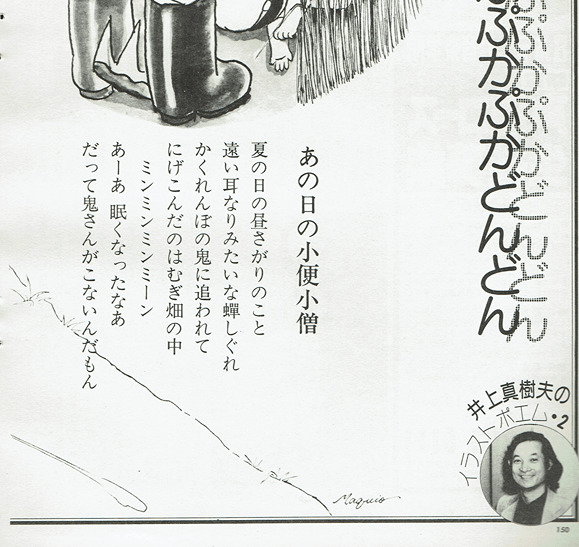 ぷかぷかどんどん
あの日の小便小僧
夏の日の昼さがりのこと
遠い耳なりみたいな蟬しぐれ
かくれんぼの鬼に追われて
にげこんだのはむぎ畑の中
ミンミンミンミーン
あーあ 眠くなったなあ
だって鬼さんがこないんだもん
井上真樹夫の
イラストポエム・2
Maquio
150